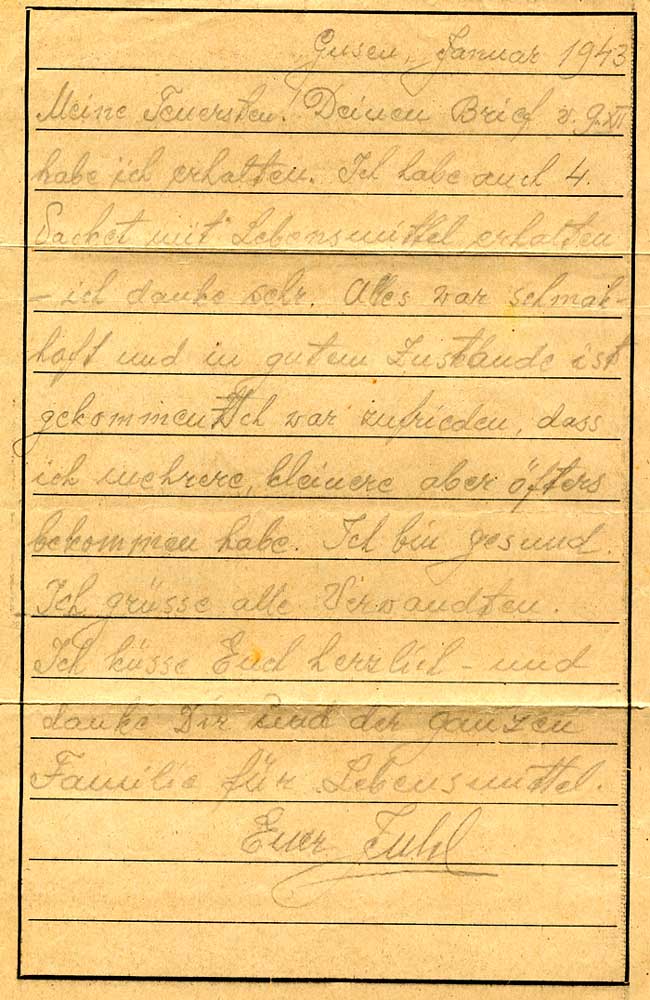 Gusen, Januar 1943
Meine Teuersten! Deinen Brief v. 9.XII
habe ich erhalten. Ich habe auch 4.
Packet mit Lebensmittel erhalten
- ich danke sehr. Alles war schmak-
haft und in gutem Zustande ist
gekommen. Ich war zufrieden, dass
ich mehrere, kleinere aber öfters
bekommen habe. Ich bin gesund.
Ich grüsse alle Verwandten.
Ich küsse Euch herzlich - und
danke Dir und der ganzen
Familie für Lebensmittel.
Euer